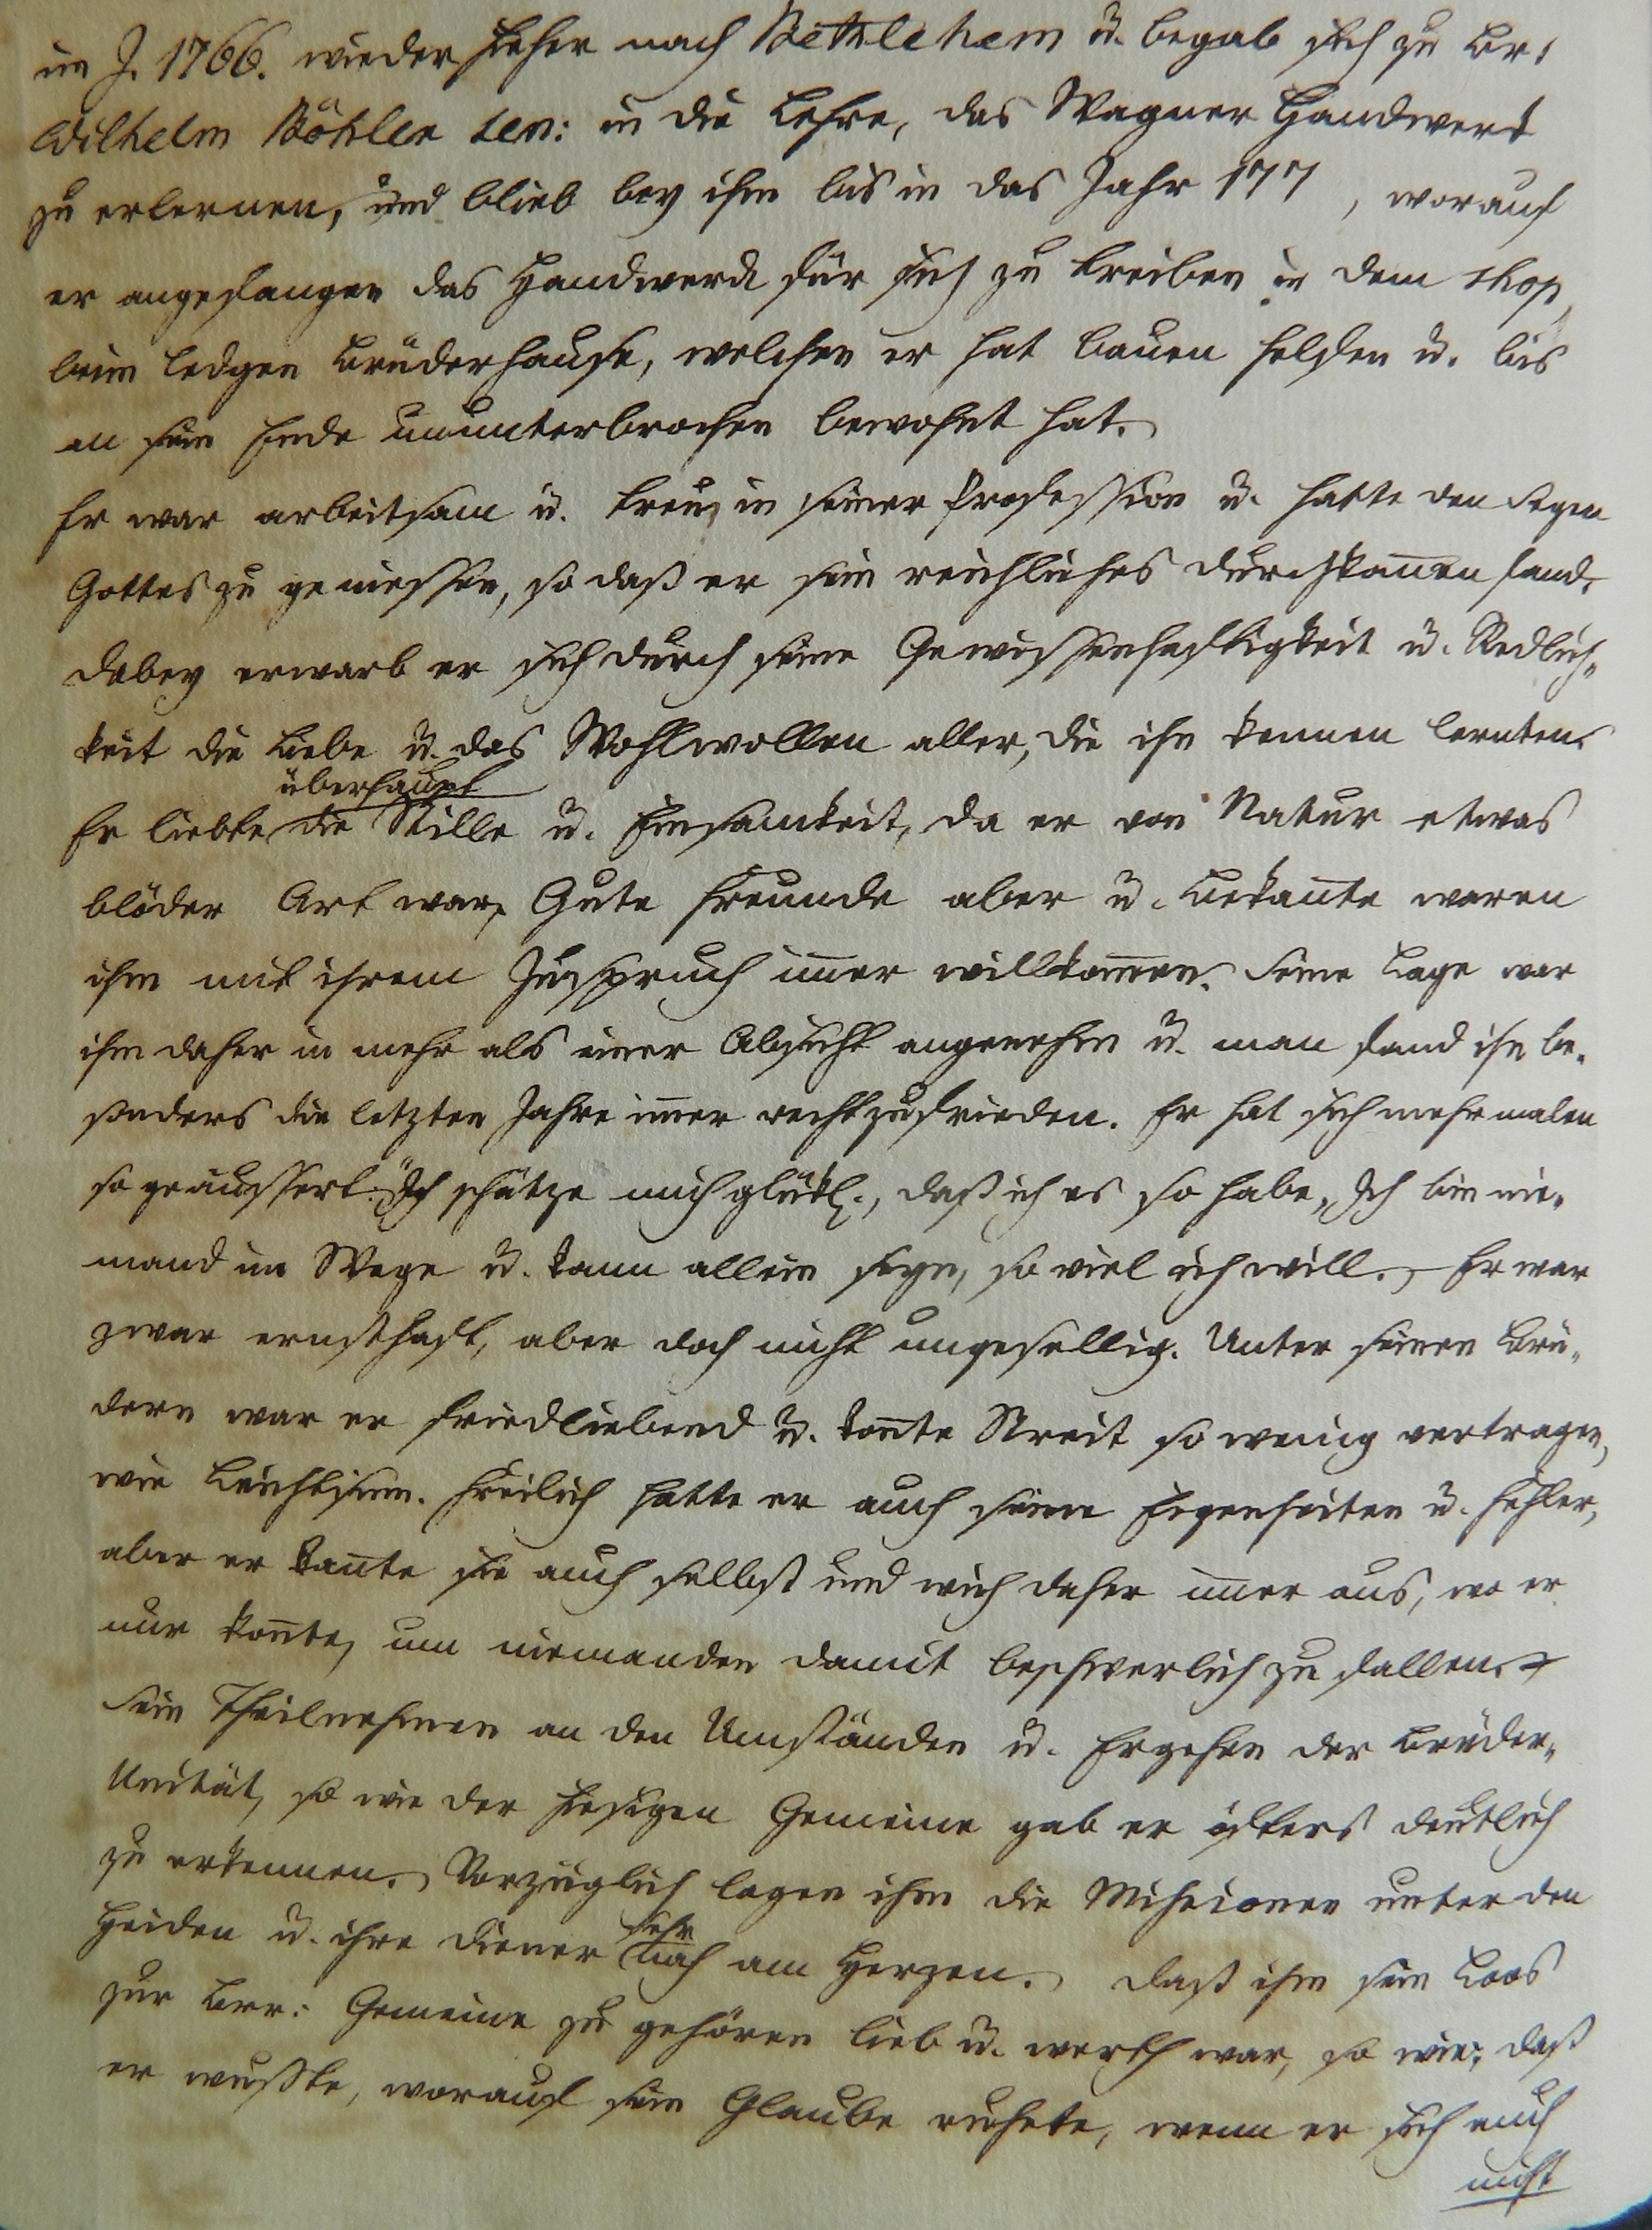 im J. 1766. wieder hieher nach Bethlehem u. begab sich zu Br.
Wilhelm Böhler sen: in die Lehre, das Wagner Handwerk
zu erlernen, und blieb bey ihm bis in das Jahr 177 , worauf
er angefangen das Handwerck für sich zu treiben in dem shop
beim ledgen Brüderhause, welchen er hat bauen helfen u. bis
an sein Ende ununterbrochen bewohnt hat.
Er war arbeitsam u. treu in seiner Profession u. hatte den Segen
Gottes zu geniessen, so daß er sein reichliches Durchkom̄en fand.
Dabey erwarb er sich durch seine Gewissenhaftigkeit u. Redlich-
keit die Liebe u. das Wohlwollen aller, die ihn kennen lernten.
überhaupt
Er liebte die Stille u. Einsamkeit, da er von Natur etwas
blöder Art war, Gute Freunde aber u. Bekan̄te waren
ihm mit ihrem Zuspruch im̄er willkom̄en. Seine Lage war
ihm daher in mehr als einer Absicht angenehm u. man fand ihn be-
sonders die letzten Jahre im̄er recht zufrieden. Er hat sich mehrmalen
so geäussert: "Ich schätze mich glükl., daß ich es so habe, Ich bin nie-
mand im Wege u. kann allein seyn, so viel ich will. Er war
zwar ernsthaft, aber doch nicht ungesellig. Unter seinen Brü-
dern war er friedliebend u. kon̄te Streit so wenig vertragen,
wie Leichtsinn. Freilich hatte er auch seine Eigenheiten u. Fehler,
aber er kan̄te sie auch selbst und wich daher im̄er aus, wo er
nur kon̄te, um niemanden damit beschwerlich zu fallen.
Sein Theilnehmen an den Umständen u. Ergehen der Brüder-
Unität, so wie der hiesigen Gemeine gab er öfters deutlich
zu erkennen. Vorzüglich lagen ihm die Missionen unter den
sehr
Heiden u. ihre Diener nah am Herzen. Daß ihm sein Loos
zur Brr: Gemeine zu gehören lieb u. werth war, so wie, daß
er wusste, worauf sein Glaube ruhete, wenn er sich auch
nicht